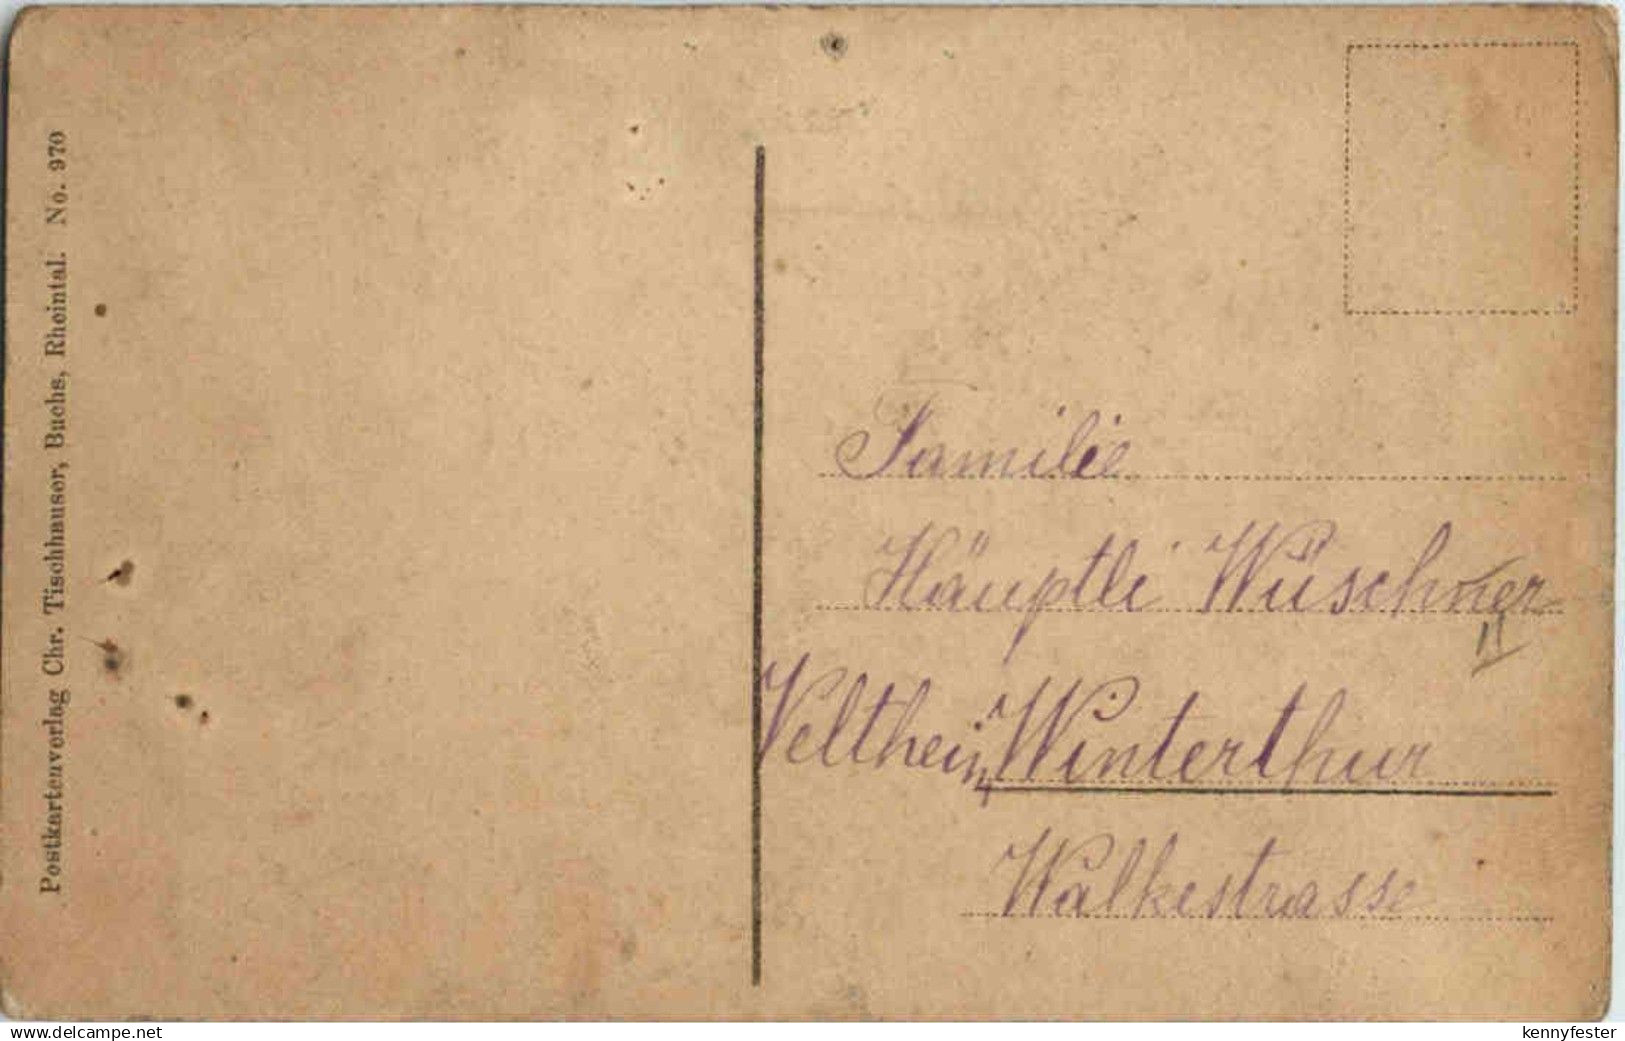 Postkartenverlag Chr. Tischhauser, Buchs, Rheintal. No. 970
Familie
Häuptli Wüschner
Veltheim Winterthur
Walkestrasse
www.delcampe.net
kennyfester